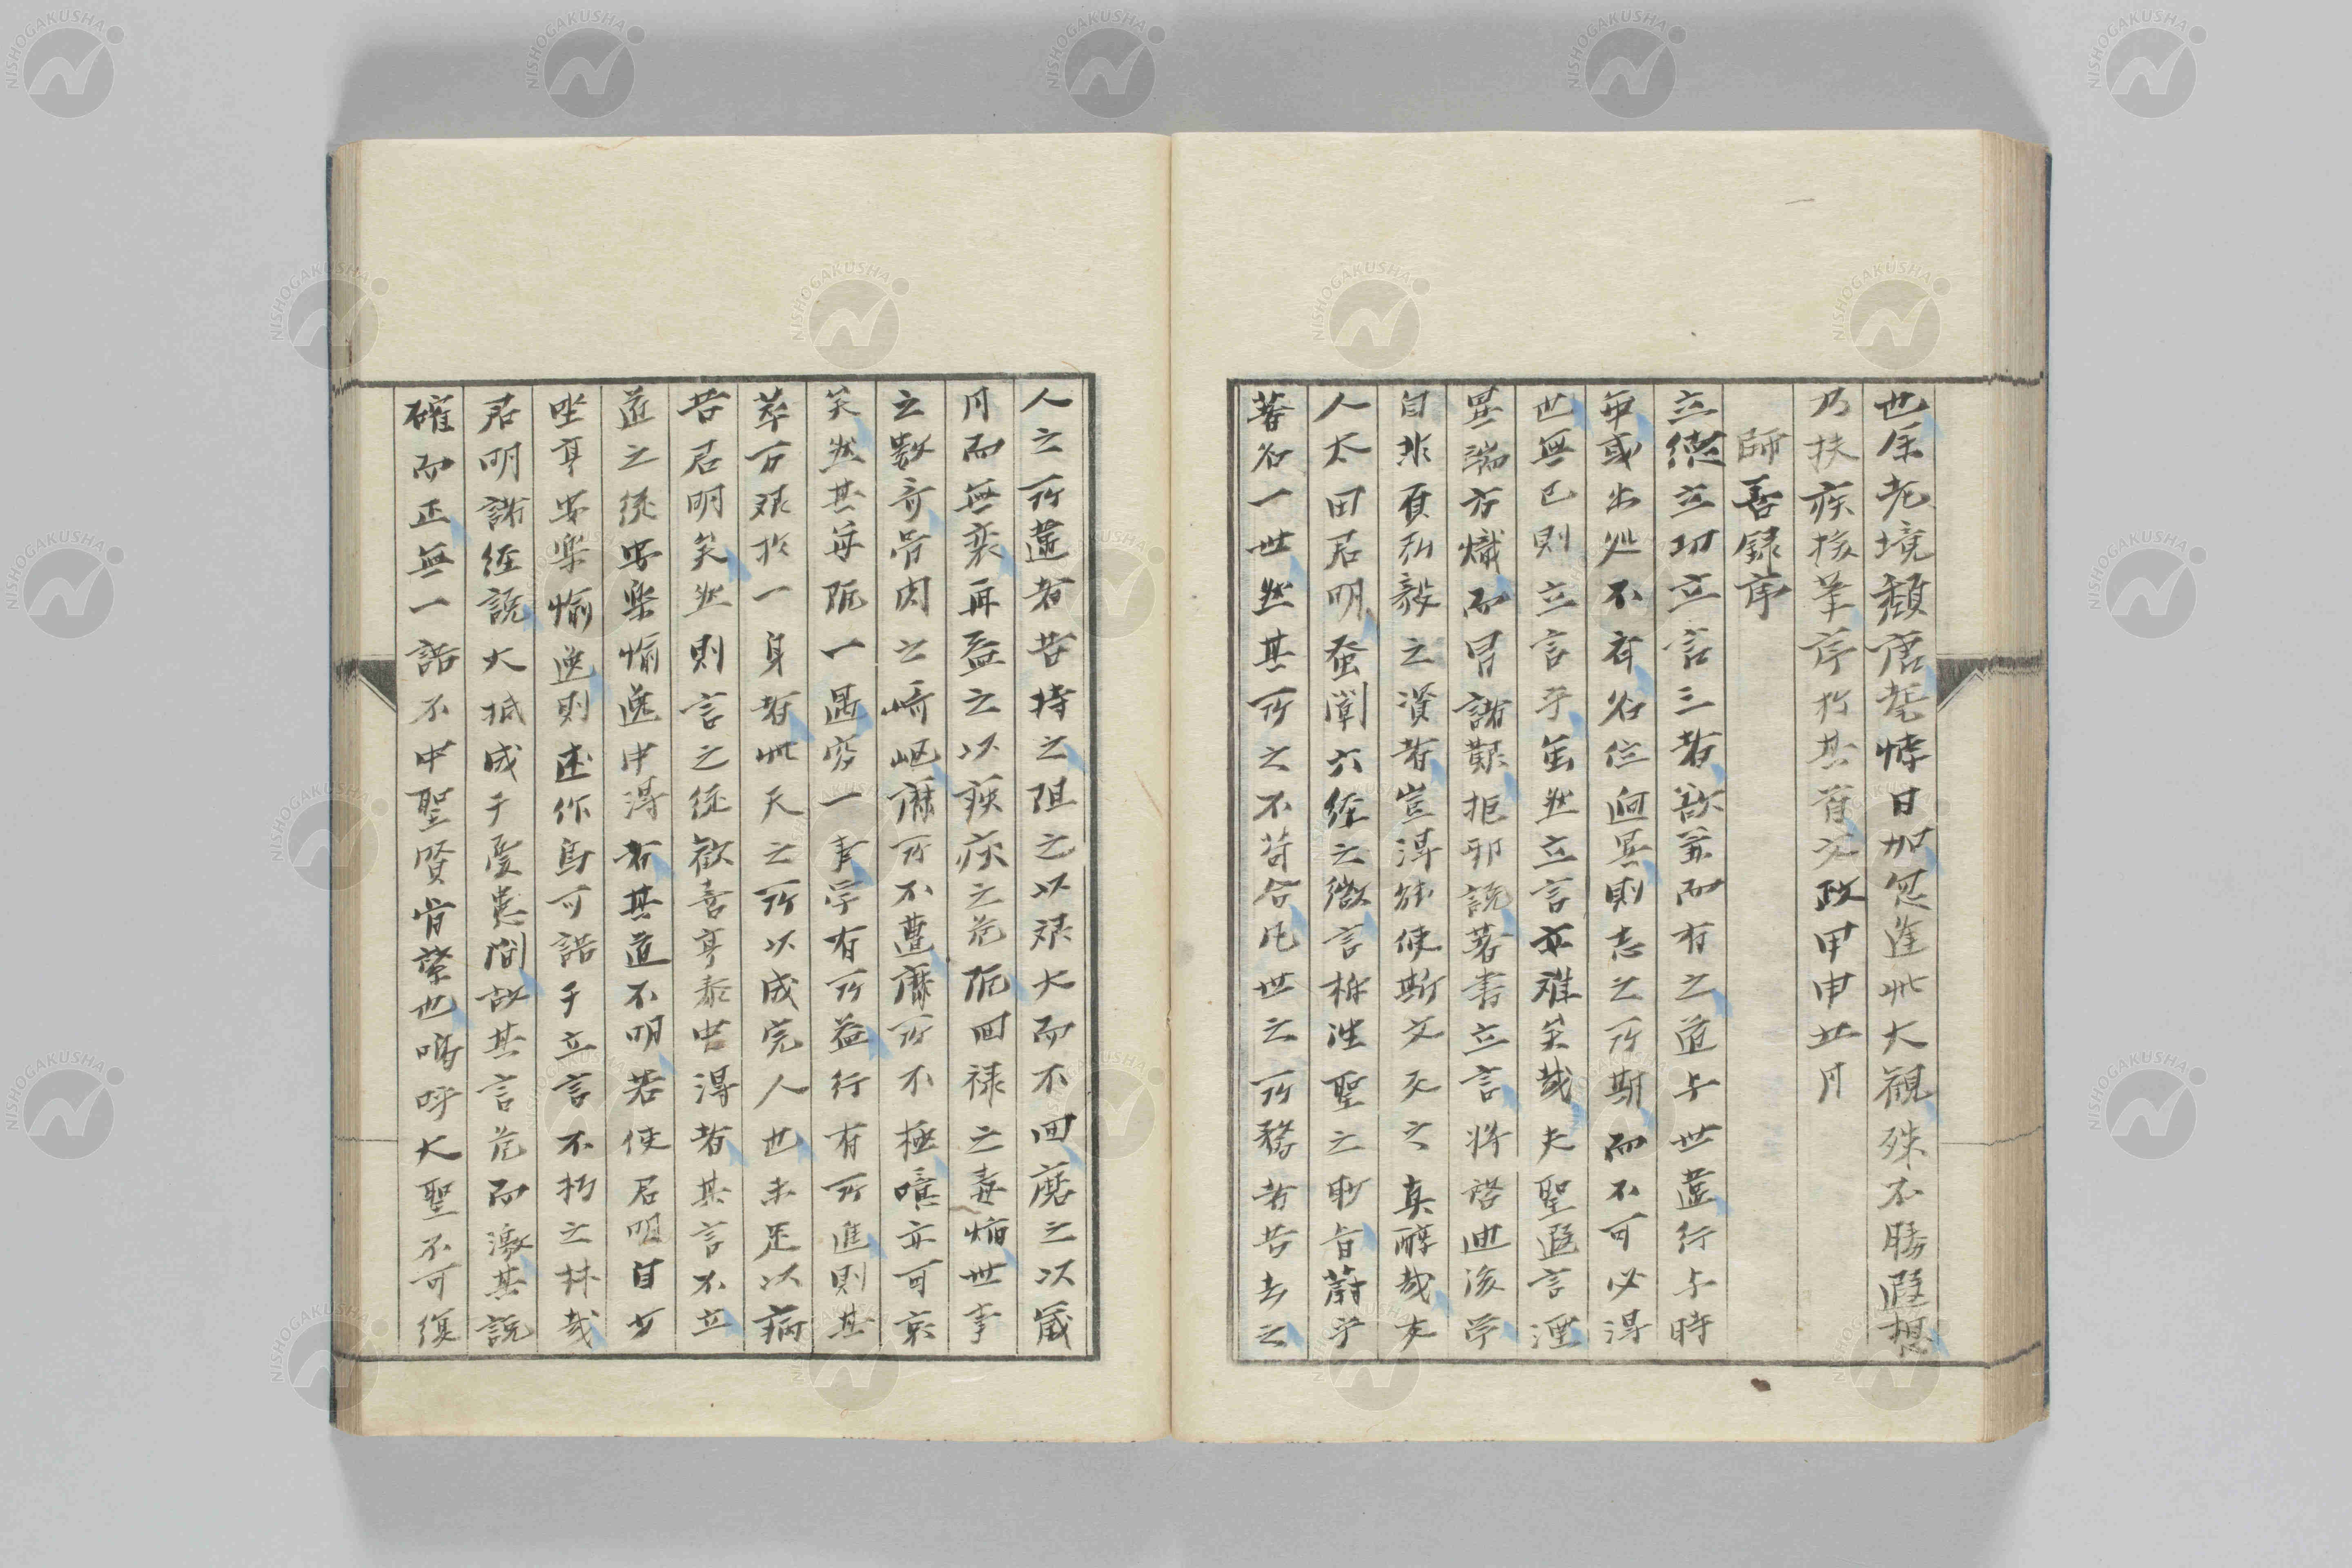 也余老境頽唐耄悖日加忽逢此大觀殊不勝遐想
乃扶疾援筆序於其首文政甲申五月
師善録序
立德立功立言三者欲並而有之道与世違行与時
乖或出処不斉名位迥異則志之所期而不可必得
也無已則立言乎虽然立言亦难矣哉夫聖遐言湮
異端方熾而冒諸艱拒邪説著書立言将啓迪後学
自非有弘毅之資者豈得能使斯文天之真醇哉友
人太田君明蚤闡六経之微言柝往聖之睿旨蔚乎
著名一世然其所之不苟合凡世之所務者皆去之
人之所違者皆持之阻之以艱大而不回磨之以歳
月而無変再益之以疾疢之危阨回禄之毒焰世事
之数奇骨肉之崎嶇靡所不遭靡所不極噫亦可哀
矣然其每阨一遇窮一事学有所益行有所進則其
萃百艱於一身者此天之所以成完人也未足以病
吾君明矣然則言之従歓喜享泰中得者其言不立
道之従安楽愉逸中得者其道不明若使君明自少
坐享安楽愉逸則述作馬可語于立言不朽之林哉
君明諸経説大抵成于憂患間故其言危而激其説
確而正無一語不中聖賢肯綮也嗚呼大聖不可復
NISHOGAKUSHA